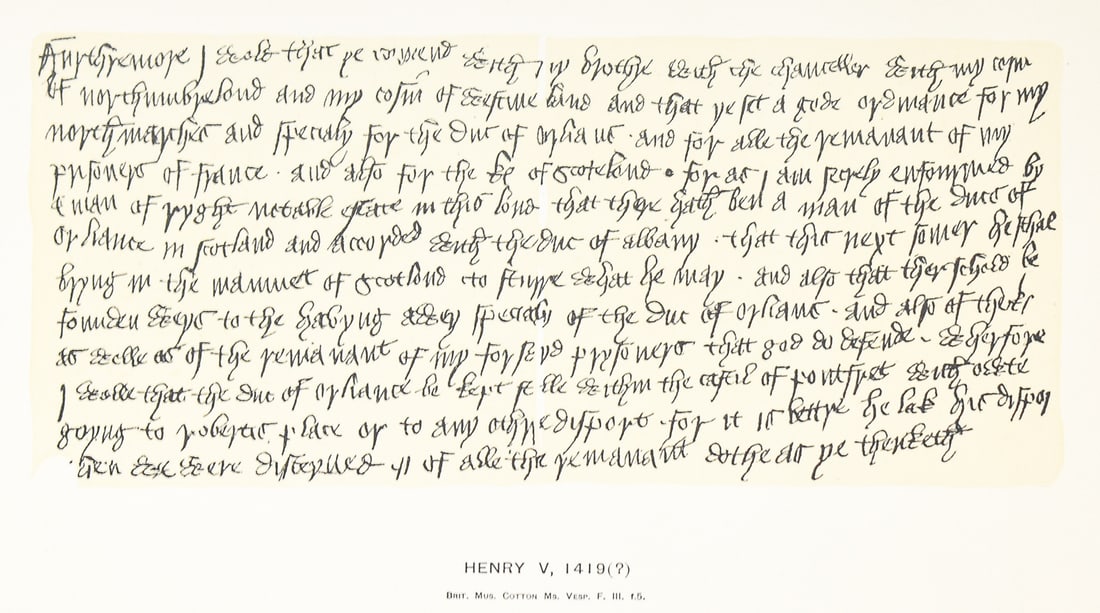 Furthremore I wole that ye comend with my brothre with the chanceller with my cosin
of northumbrelond and my cosin of westmerland and that ye set a gode ordinance for my
north marches and specialy for the duc of orlians · and for alle the remanant of my
prisoners of france · and also for the k of scotelond · for as I am secrely enfourmed by
a man of ryght notable estate in this lond that there hath ben a man of the ducs of
orliance in scotland and accorded with the duc of albany · that this next somer he schal
bryng in the mamuet of scotlond to sturre what he may · and also that ther schold be
founden weys to the havyng awey specialy of the duc of orlians · and also of the
as welle as of the remanant of my forseyd prysoners that god do defende · wherfore
I wolle that the duc of orliance be kept stille within the castil of pontfret with owte
goyng to robertis place or to any othre disport · for it is bettre he lak his dispor
then we were disceyved of alle the remanant dothe as ye thenketh
HENRY V, 1419(?)
BRIT. MUS. COTTON MS. VESP. F. III. f.5.